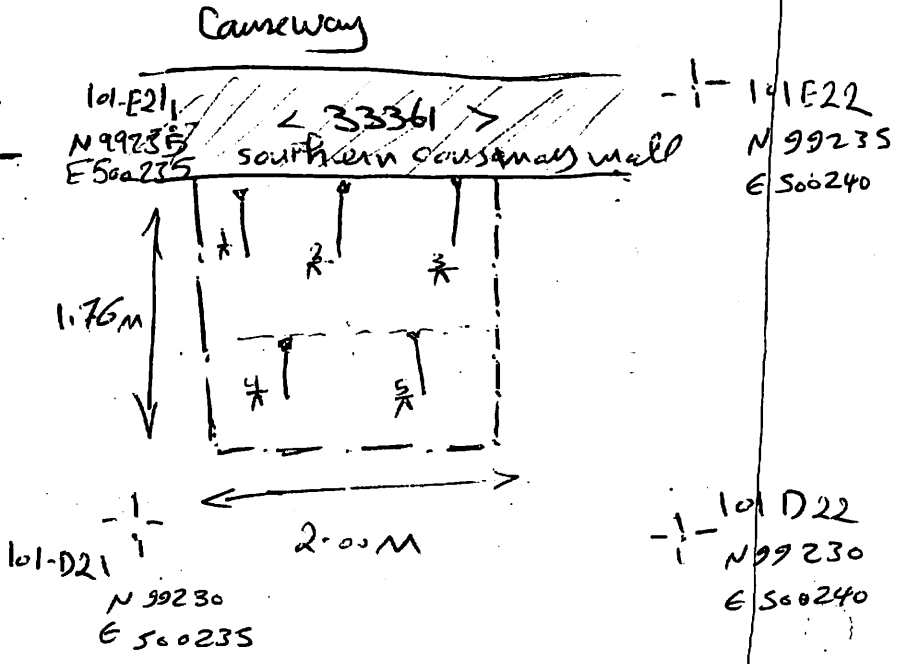 Causeway
101-E21
N 99235
E 500235
< 33361 >
southern causeway wall
101 E22
N 99235
E 500240
1/A
2/A
3/A
1.76 M
4/A
5/A
2.00 M
101-D21
N 99230
E 500235
101 D22
N 99230
E 500240